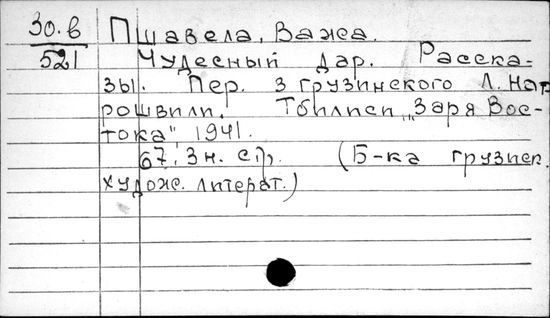 30.в
521
Пшавела, Важа.
Чудесный дар. Расска-
зы. Пер. з грузинского Л. Нар
рошвили. Тбилиси, „Заря Вос-
тока", 1941.
67, 3 н. с.
(Б-ка грузин.
худож. литерат.)